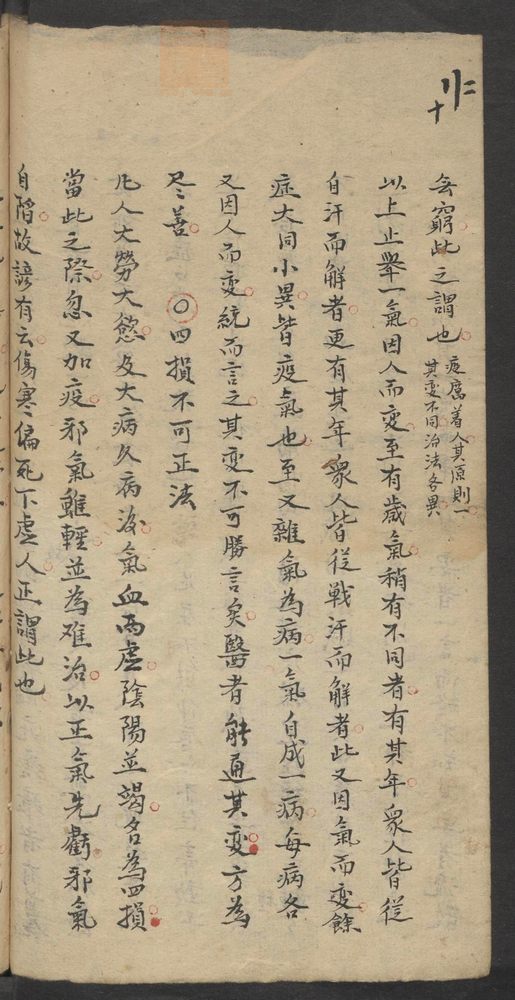 十
無窮此之謂也 疫癘着人其原則一
其变不同治法各異
以上止舉一氣因人而变至有歲氣稍有不同者有其年衆人皆從
自汗而解者更有其年衆人皆從戰汗而解者此又因氣而变餘
症大同小異皆疫氣也至又雜氣為病一氣自成一病每病各
又因人而变統而言之其变不可勝言矣醫者能通其变方為
尽善〇四損不可正法
凡人大勞大慾及大病久病後氣血兩虛陰陽並竭名為四損
當此之際忽又加疫邪氣雖輕並為难治以正氣先虧邪氣
自陷故諺有云傷寒偏死下虛人正謂此也